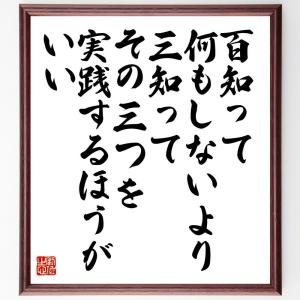 百知って
何もしないより
三知って
その三つを
実践するほうが
いい